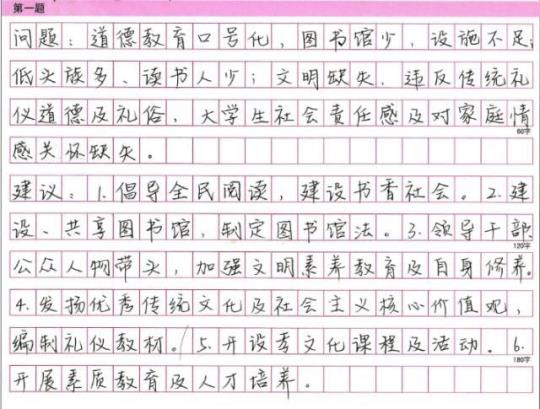 第一题
问题：道德教育口号化，图书馆少，设施不足；
低头族多、读书人少；文明缺失、违反传统礼
仪道德及礼俗，大学生社会责任感及对家庭情
60字
感关怀缺失。
建议：1.倡导全民阅读，建设书香社会。2.建
设、共享图书馆，制定图书馆法。3.领导干部
120字
公众人物带头，加强文明素养教育及自身修养。
4.发扬优秀传统文化及社会主义核心价值观，
编制礼仪教材。5.开设秀文化课程及活动。6.
180字
开展素质教育及人才培养。